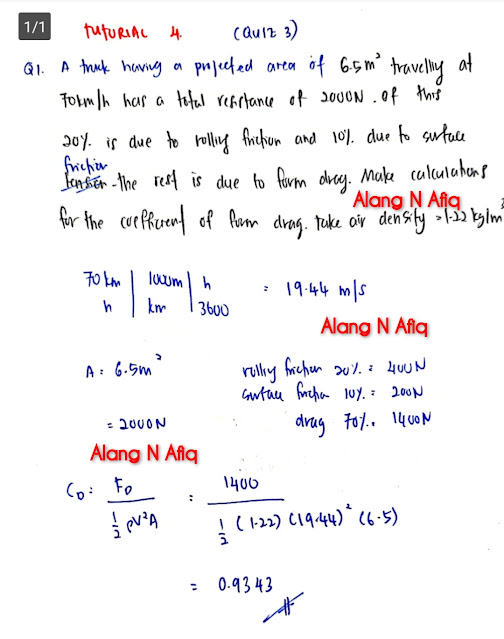 1/1
TUTORIAL 4. (QUIZ 3)
Q1. A truck having a projected area of 6.5m² travelling at
70km/h has a total resistance of 2000N. Of this
20% is due to rolling friction and 10% due to surface
friction
the rest is due to form drag. Make calculations
Alang N Afiq
for the coefficient of form drag. Take air density = 1.22 kg/m³
70 km | 1000m | h
h | km | 3600
= 19.44 m/s
Alang N Afiq
A = 6.5m²
rolling friction 20% = 400N
surface friction 10% = 200N
= 2000N
drag 70% = 1400N
Alang N Afiq
C_D = F_D / ½ ρV²A = 1400 / ½ (1.22) (19.44)² (6.5)
= 0.9343